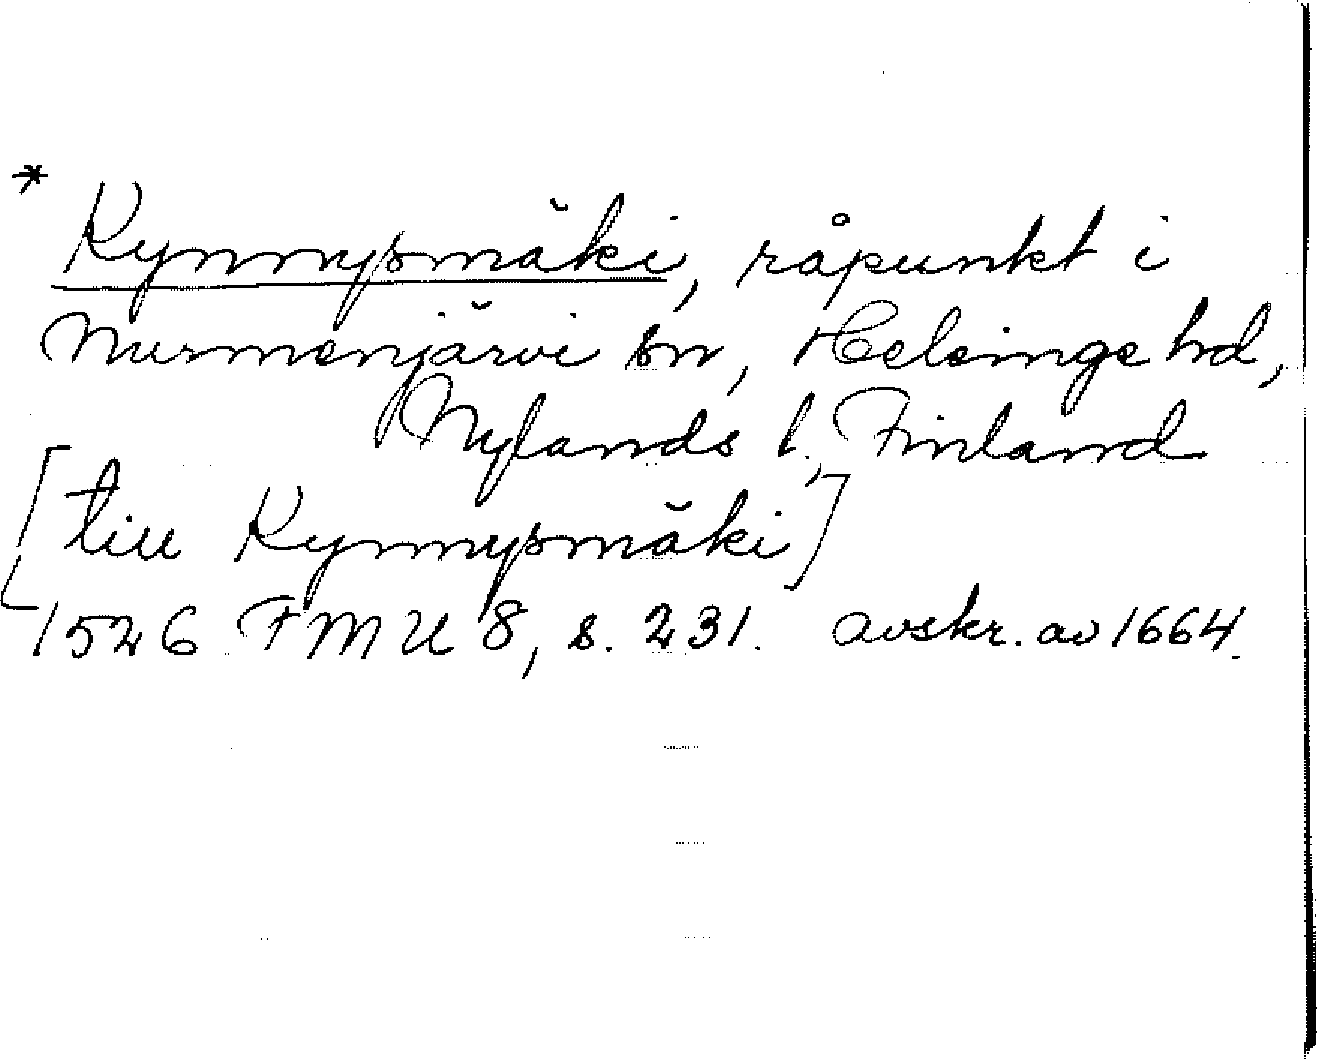 * Kynnysmäki, råpunkt i
Nurmenjärvi sn, Helsinge hd,
Nylands l., Finland
[till Kynnysmäki]
1526 FMU 8, s. 231. avskr. av 1664.